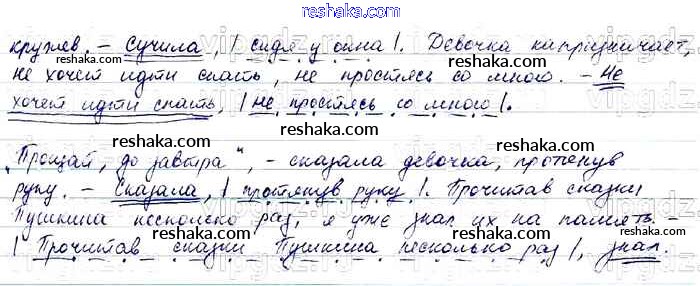 reshaka.com
кружев. – Сучила, | сидя у окна |. Девочка капризничает,
не хочет идти спать, не простясь со мною. – Не
хочет идти спать, | не простясь со мною |.
reshaka.com
reshaka.com
reshaka.com
„Прощай, до завтра“, – сказала девочка, протянув
руку. – Сказала, | протянув руку |. Прочитав сказки
Пушкина несколько раз, я уже знал их на память. –
| Прочитав сказки Пушкина несколько раз |, знал.
reshaka.com
reshaka.com
reshaka.com
reshaka.com